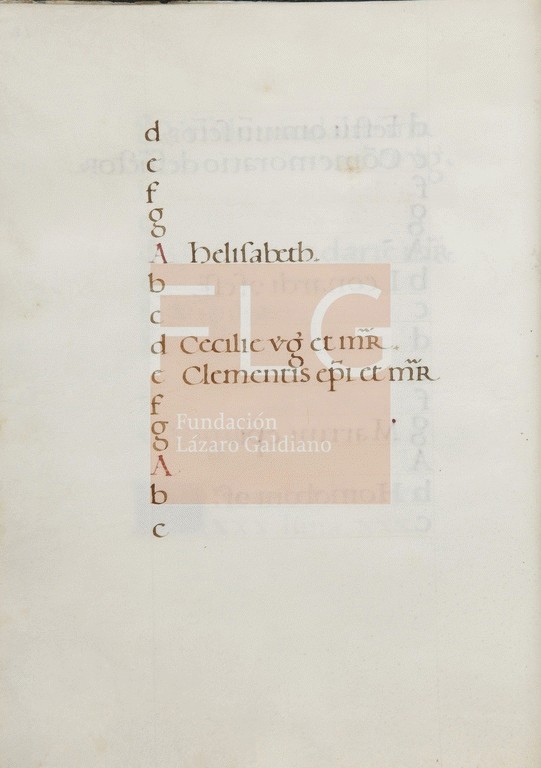 d
e
f
g
A helisabeth.
b
c
d Cecilie vg̃ et mr̃.
e Clementis ep̃i et mr̃
f
g
A
b
c
FLG
Fundación
Lázaro Galdiano